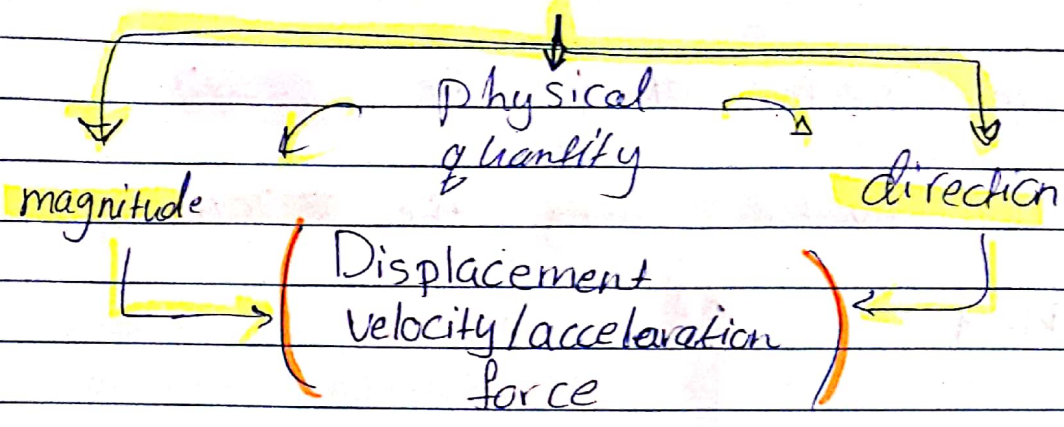 physical
quantity
magnitude
direction
Displacement
velocity/acceleration
force